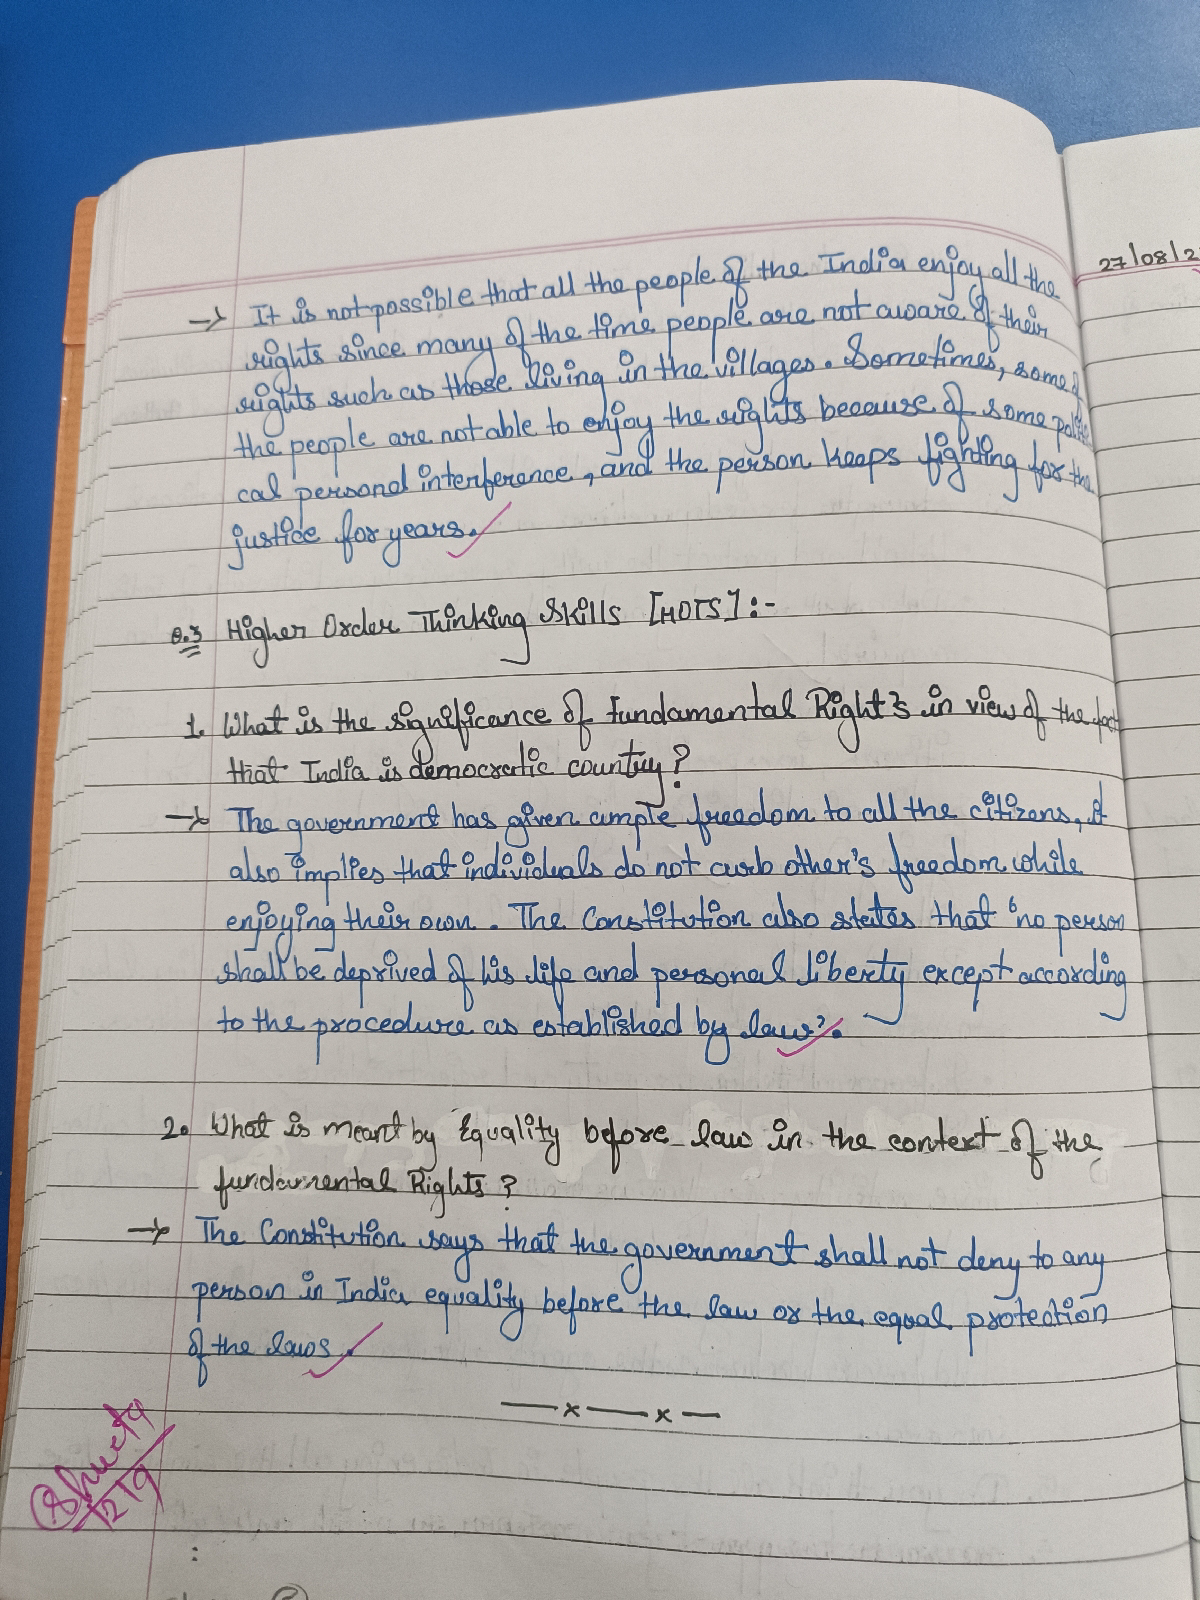 27/08/2
→ It is not possible that all the people of the India enjoy all the
rights since many of the time people are not aware of their
rights such as those living in the villages. Sometimes, some of
the people are not able to enjoy the rights because of some politi
cal personal interference, and the person keeps fighting for the
justice for years.
Q.3 Higher Order Thinking Skills [HOTS] :-
1. What is the significance of Fundamental Right's in view of the fact
that India is democratic country?
→ The government has given ample freedom to all the citizens, it
also implies that individuals do not curb other's freedom while
enjoying their own. The Constitution also states that 'no person
shall be deprived of his life and personal liberty except according
to the procedure as established by law'.
2. What is meant by Equality before law in the context of the
fundamental Rights?
→ The Constitution says that the government shall not deny to any
person in India equality before the law or the equal protection
of the laws.
—x—x—
Shweta
12/9